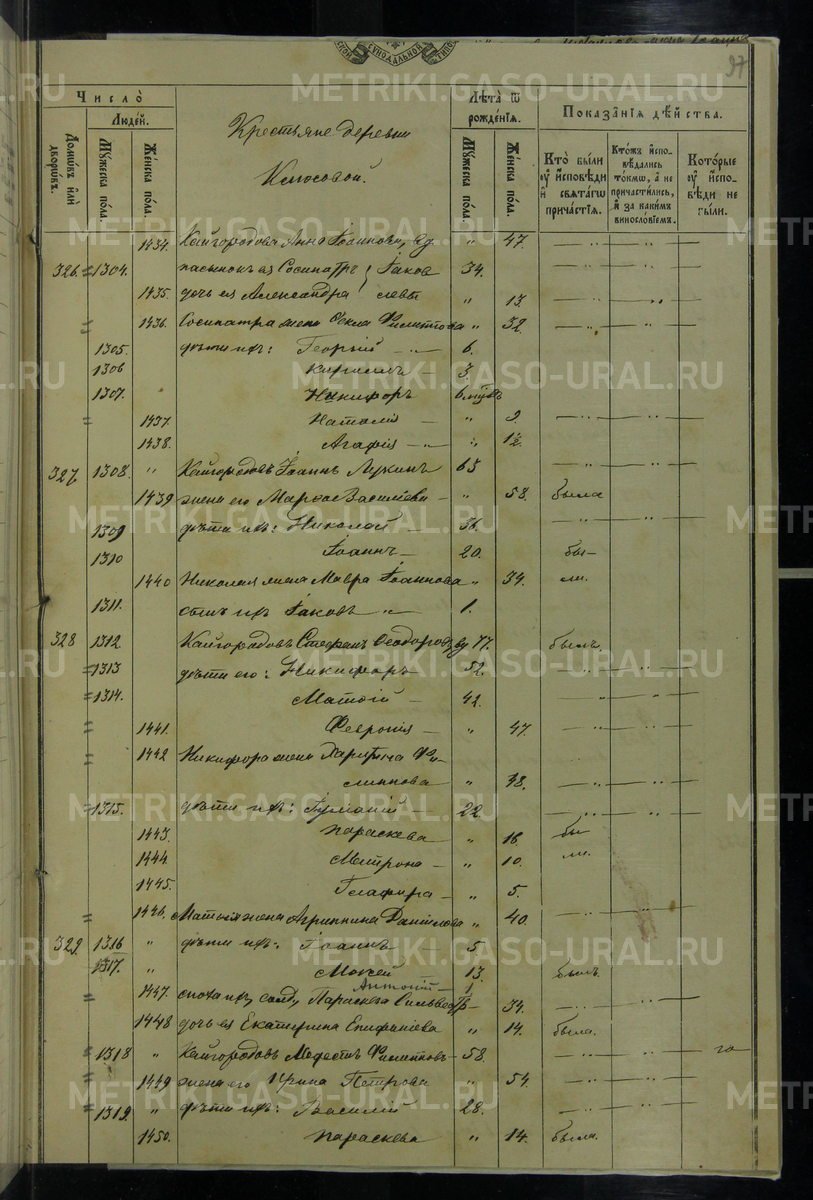 97
Число̀
Людей.
Домѡвъ или дворѡвъ.
Мꙋжеска пола.
Женска пола.
Крестьяне деревни
Лѣта ѿ рожденїѧ.
Мꙋжеска пола.
Женска пола.
Показанїѧ дѣйства.
Кто были ᲂу исповѣди и свѧтагѡ причастїѧ.
Ктожъ исповѣдались токмѡ, а не причастились, и за какимъ винословїемъ.
Которые ᲂу исповѣди не были.
1434. Кайгородова Анна Іоаннова, вд. " 47.
326. 1304. пасынокъ ея Сосипатръ Іаков 34.
1435. дочь ея Александра левы " 13
1436. Сосипатра жена Ѳекла Филиппова " 32
1305. дѣти ихъ: Георгій 6.
1306 Кириллъ 3.
1307. Никифоръ 6 мцвъ
1437. Наталія " 9.
1438. Агафія " 1½
327. 1308. " Кайгородовъ Іоаннъ Лукинъ 65
1439 жена его Марѳа Васильева " 58. была
1309 дѣти ихъ: Николай 36.
1310 Іоаннъ 20. бы-
1440 Николая жена Мавра Іоаннова " 34. ли.
1311. сынъ ихъ Іаковъ " 1.
328 1312. Кайгородовъ Стефанъ Ѳеодоровъ, вд 77. былъ.
1313 дѣти его: Никифоръ 52.
1314. Матѳій 42.
1441. Феврония " 47.
1442 Никифора жена Харитина Фи-
липпова " 48.
1315. дѣти ихъ: 22.
1443. Параскева " 16. бы
1444 Матрона " 10. ли.
1445. Глафира " 5.
1446. Матѳія жена Агриппина Данилова " 40.
329. 1316 " дѣти ихъ: Іоаннъ 5.
1317. " Мокей 13. былъ.
Антоній 1
1447. сноха ихъ, солд, Параскева Сильвестр 34.
1448 дочь ея Екатерина Епифаніева " 14. была.
1318 " Кайгородовъ Модестъ Филипповъ 58.
1449 жена его Ирина Петрова " 54.
1319. " дѣти ихъ: Василій 28.
1450. Параскева " 14. была.
METRIKI.GASO-URAL.RU